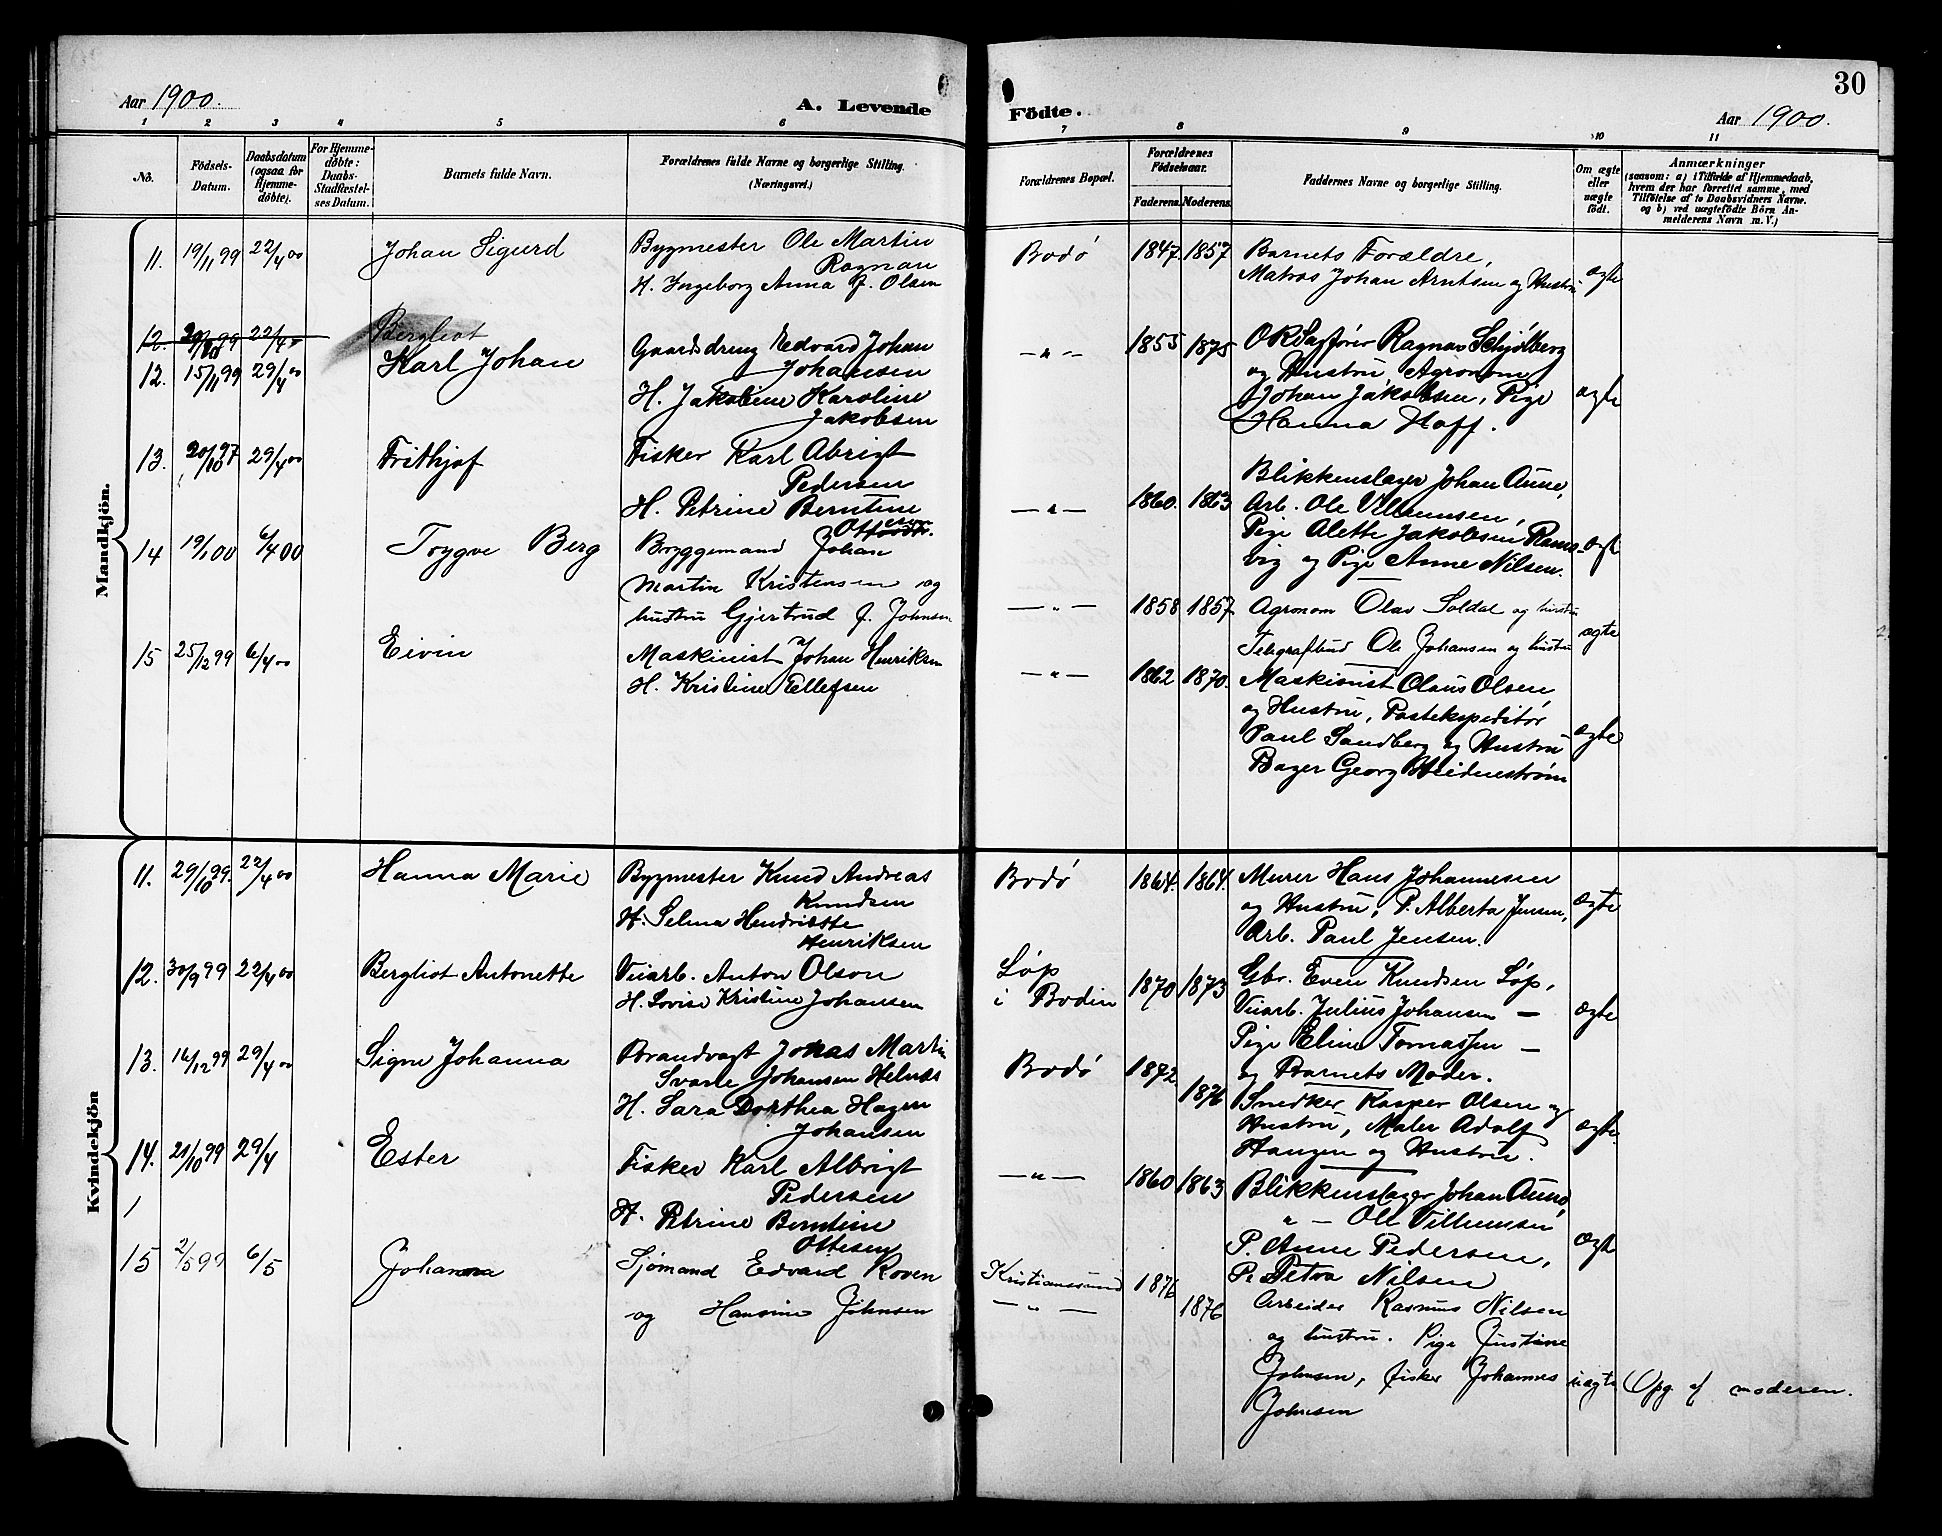 30
Aar 1900.
A. Levende
Födte.
Aar 1900.
1 2 3 4 5 6 7 8 9 10 11
No.
Födsels-Datum.
Daabsdatum (ogsaa for Hjemme-döbte).
For Hjemme-döbte: Daabs-Stadfæstel-ses Datum.
Barnets fulde Navn.
Forældrenes fulde Navne og borgerlige Stilling.
(Næringsvei.)
Forældrenes Bopæl.
Forældrenes Födselsaar.
Faderens.
Moderens.
Faddernes Navne og borgerlige Stilling.
Om ægte eller uægte födt.
Anmærkninger
(saasom: a) i Tilfælde af Hjemmedaab,
hvem der har forrettet samme, med
Tilföielse af to Daabsvidners Navne.
og b) ved uægtefödte Börn An-
melderens Navn m. V.)
Mandkjön.
11. 19/11 99 22/4 00 Johan Sigurd
Bygmester Ole Martin
Ragnan
H. Ingeborg Anna f. Olsen
Bodø 1847. 1857
Barnets Forældre,
Matros Johan Arntsen og Hustru
ægte
12. 99 22/4 00 Bergliot
12. 15/11 99 29/4 00 Karl Johan
Gaardsdreng Edvard Johan
Johansen
H. Jakobine Karoline
Jakobsen
— " — 1855 1875
ORSagfører Ragnar Schjølberg
og Hustru Agronom
Johan Jakobsen, Pige
Hanna Hoff.
ægte
13. 20/10 97 29/4 00 Frithjof
Fisker Karl Abrigt
Pedersen
H. Petrine Berntine
Ottesen
— " — 1860. 1863
Blikkenslager Johan Aune,
Arb. Ole Villumsen,
Pige Alette Jakobsen Rams-
vig og Pige Anne Nilsen.
ægte
14 19/1 00 6/4 00 Trygve Berg
Bryggemand Johan
Martin Kristensen og
hustru Gjertrud f. Johnsen
— " — 1858 1857
Agronom Olav Soldal og hustru
Telegrafbud Ole Johansen og hustru
ægte
15 25/12 99 6/4 00 Eivin
Maskinist Johan Henriksen
H. Kristine Ellefsen
— " — 1862 1870.
Maskinist Claus Olsen
og Hustru, Postekspeditør
Paul Sandberg og Hustru
Bager Georg Heidenstrøm
ægte
Kvindekjön
11. 29/10 99. 22/4 00 Hanna Marie
Bygmester Knud Andreas
Knudsen
H. Selma Hendriette
Henriksen
Bodø 1864. 1864.
Murer Hans Johannesen
og Hustru, P. Alberta Jensen,
Arb. Paul Jensen.
ægte
12. 30/9 99 22/4 00 Bergliot Antonette
Veiarb. Anton Olson
H. Lovise Kristine Johansen
Løp
i Bodin 1870 1873
Gbr. Even Knudsen Løp,
Veiarb. Julius Johansen —
Pige Eline Tomassen —
og Barnets Moder.
ægte
13. 16/12 99 29/4 00 Signe Johanna
Brandvagt Jonas Martin
Svarle Johansen Helnes
H. Sara Dorthea Hagen
Johansen
Bodø 1872 1876
Snedker Kasper Olsen og
Hustru, Maler Adolf
Haugen og Hustru.
ægte
14. 21/10 99 29/4 Ester
Fisker Karl Albrigt
Pedersen
H. Petrine Berntine
Ottesen
— " — 1860 1863
Blikkenslager Johan Aune,
" — Ole Villumsen
P. Anne Pedersen,
P. Petra Nilsen
ægte
15 2/5 99 6/5 Johanna
Sjømand Edvard Roven
og Hansine Johnsen
Kristianssund 1876
— " — 1876
Arbeider Rasmus Nilsen
og hustru. Pige Justine
Johnsen, fisker Johannes
Johnsen
uægte
Opg. af moderen.